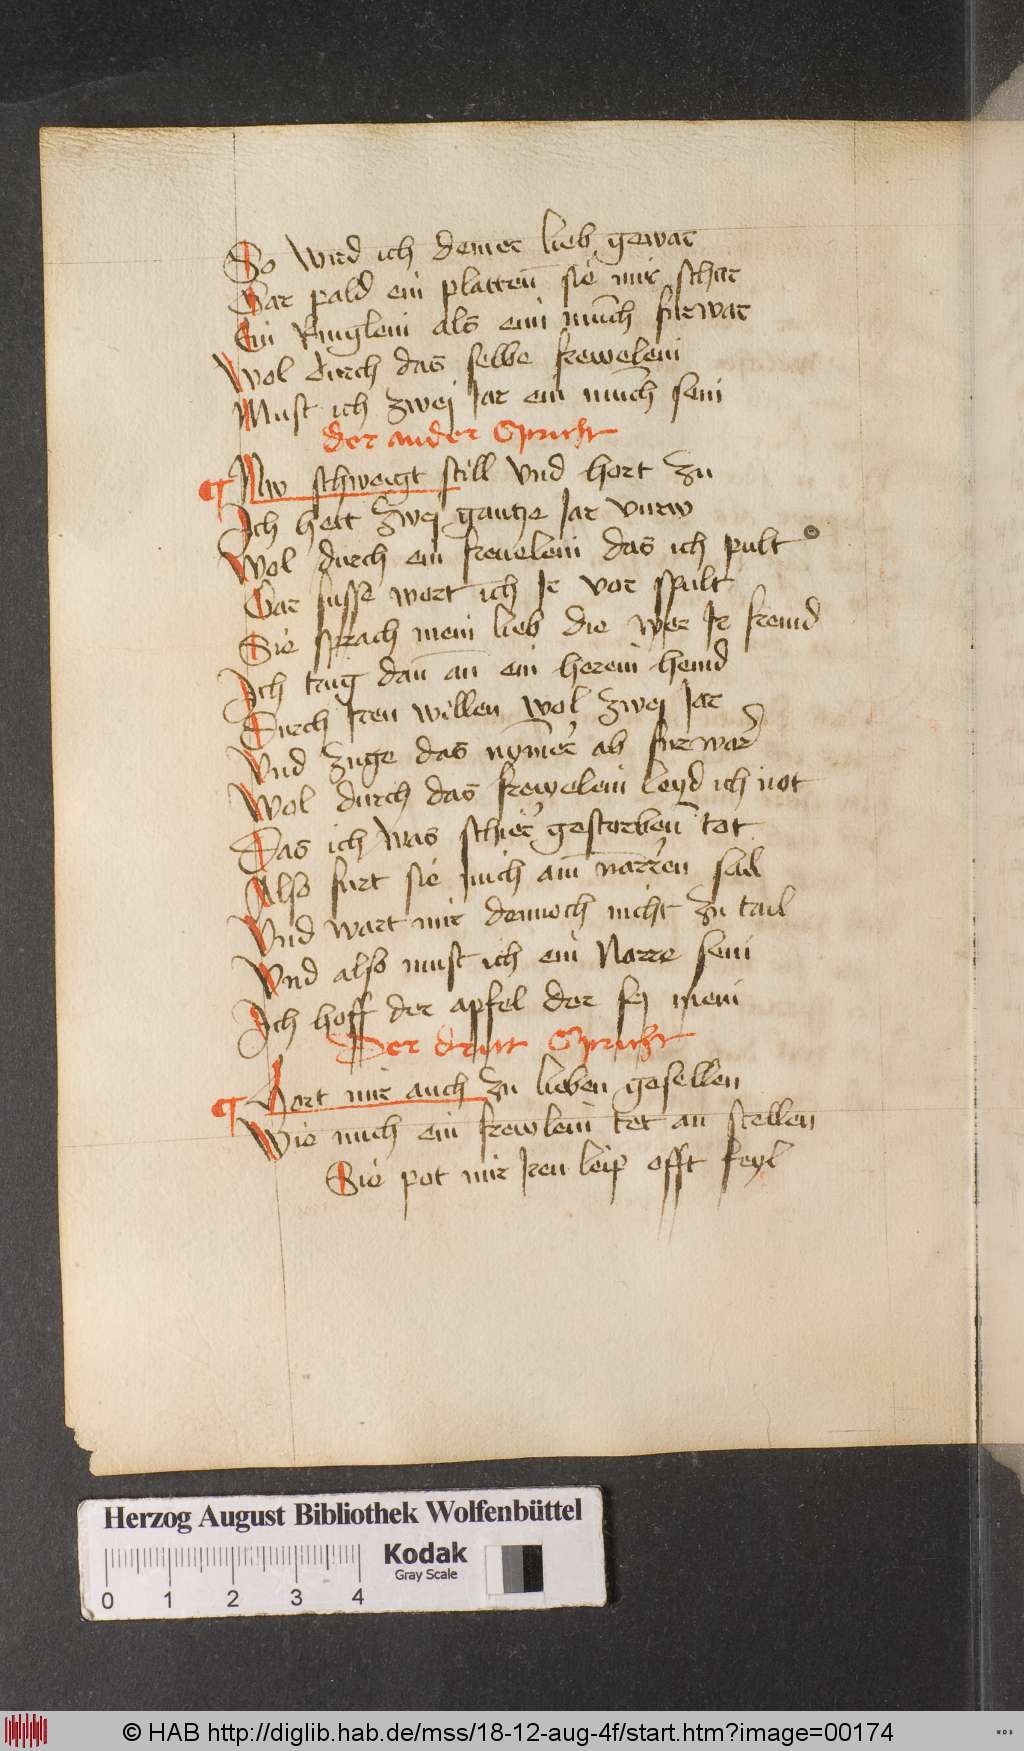 So wird ich deiner lieb gewar
Gar pald ein platten sie mir schar
Ein Ringlein als eim münch furwar
Wol durch das selbe frewelein
Must ich zwej Jar ein münch sein
der ander Spricht
¶ Nw schweigt still vnd hort zu
Ich hett zwej gantze Jar vnrw
Wol durch ein frewelein das ich pult
Gar susse wort ich Ir vor spült
Sie sprach mein lieb die wer Ir fremd
Ich trug dan̄ an ein herein hemd
Durch Iren willen wol zwej Jar
Vnd zuge das nym̄er ab furwar
Wol durch das frewelein leyd ich not
Das ich was schier gestorben tot
Also furt sie mich am narren sail
Vnd wart mir dennoch nicht zu tail
Vnd also must ich ein Narre sein
Ich hoff der apfel der sej mein
Der dritt Spricht
¶ Hort mir auch zu lieben gesellen
Wie mich ein frewlein tet an stellen
Sie pot mir Iren leip offt feyl
Herzog August Bibliothek Wolfenbüttel
Kodak
Gray Scale
0 1 2 3 4
© HAB http://diglib.hab.de/mss/18-12-aug-4f/start.htm?image=00174